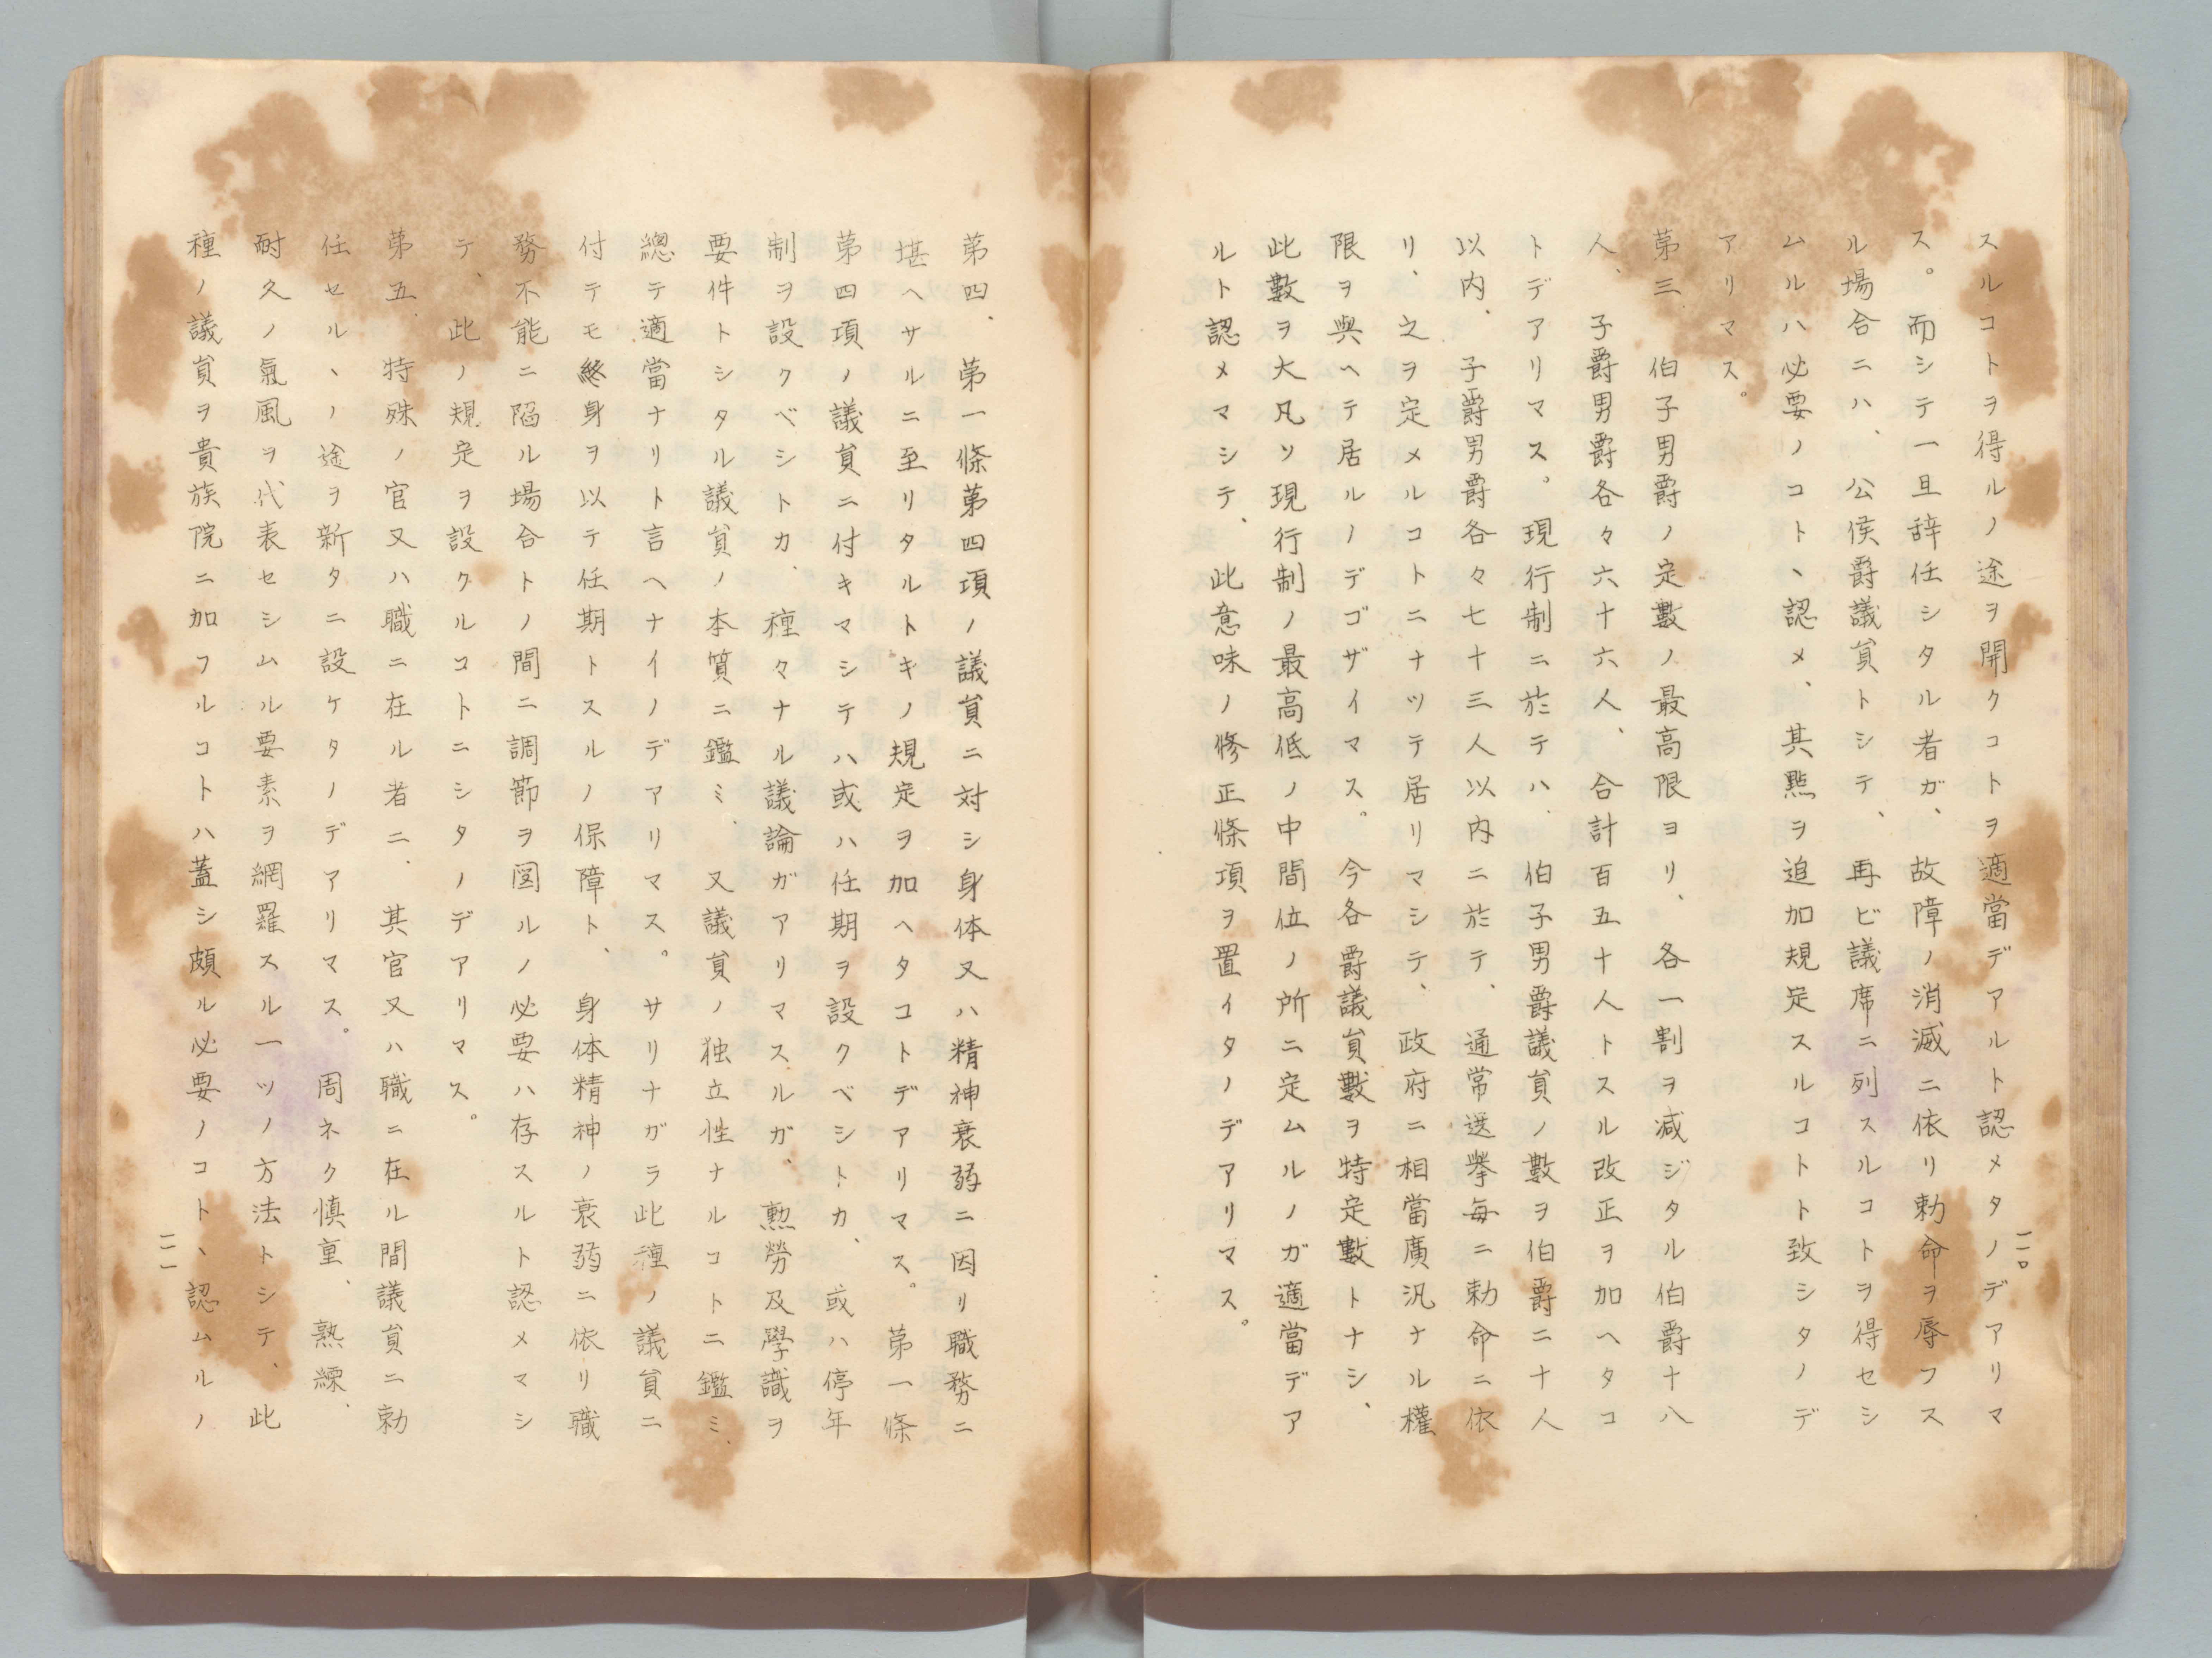 スルコトヲ得ルノ途ヲ開クコトヲ適當デアルト認メタノデアリマ
ス。而シテ一旦辞任シタル者ガ、故障ノ消滅ニ依リ勅命ヲ辱フス
ル場合ニハ、公侯爵議員トシテ、再ビ議席ニ列スルコトヲ得セシ
ムルハ必要ノコトヽ認メ、其點ヲ追加規定スルコトト致シタノデ
アリマス。
第三、伯子男爵ノ定數ノ最高限ヨリ、各一割ヲ減ジタル伯爵十八
人、子爵男爵各々六十六人、合計百五十人トスル改正ヲ加ヘタコ
トデアリマス。現行制ニ於テハ、伯子男爵議員ノ數ヲ伯爵二十人
以内、子爵男爵各々七十三人以内ニ於テ、通常選擧毎ニ勅命ニ依
リ、之ヲ定メルコトニナツテ居リマシテ、政府ニ相當廣汎ナル權
限ヲ與ヘテ居ルノデゴザイマス。今各爵議員數ヲ特定數トナシ、
此數ヲ大凡ソ現行制ノ最高低ノ中間位ノ所ニ定ムルノガ適當デア
ルト認メマシテ、此意味ノ修正條項ヲ置イタノデアリマス。
二一〇
第四、第一條第四項ノ議員ニ対シ身体又ハ精神衰弱ニ因リ職務ニ
堪ヘサルニ至リタルトキノ規定ヲ加ヘタコトデアリマス。第一條
第四項ノ議員ニ付キマシテハ或ハ任期ヲ設クベシトカ、或ハ停年
制ヲ設クベシトカ、種々ナル議論ガアリマスルガ、勲勞及學識ヲ
要件トシタル議員ノ本質ニ鑑ミ、又議員ノ独立性ナルコトニ鑑ミ、
總テ適當ナリト言ヘナイノデアリマス。サリナガラ此種ノ議員ニ
付テモ終身ヲ以テ任期トスルノ保障ト、身体精神ノ衰弱ニ依リ職
務不能ニ陥ル場合トノ間ニ調節ヲ図ルノ必要ハ存スルト認メマシ
テ、此ノ規定ヲ設クルコトニシタノデアリマス。
第五、特殊ノ官又ハ職ニ在ル者ニ、其官又ハ職ニ在ル間議員ニ勅
任セルヽノ途ヲ新タニ設ケタノデアリマス。周ネク慎重、熟練、
耐久ノ氣風ヲ代表セシムル要素ヲ網羅スル一ツノ方法トシテ、此
種ノ議員ヲ貴族院ニ加フルコトハ蓋シ頗ル必要ノコトヽ認ムルノ
二一一